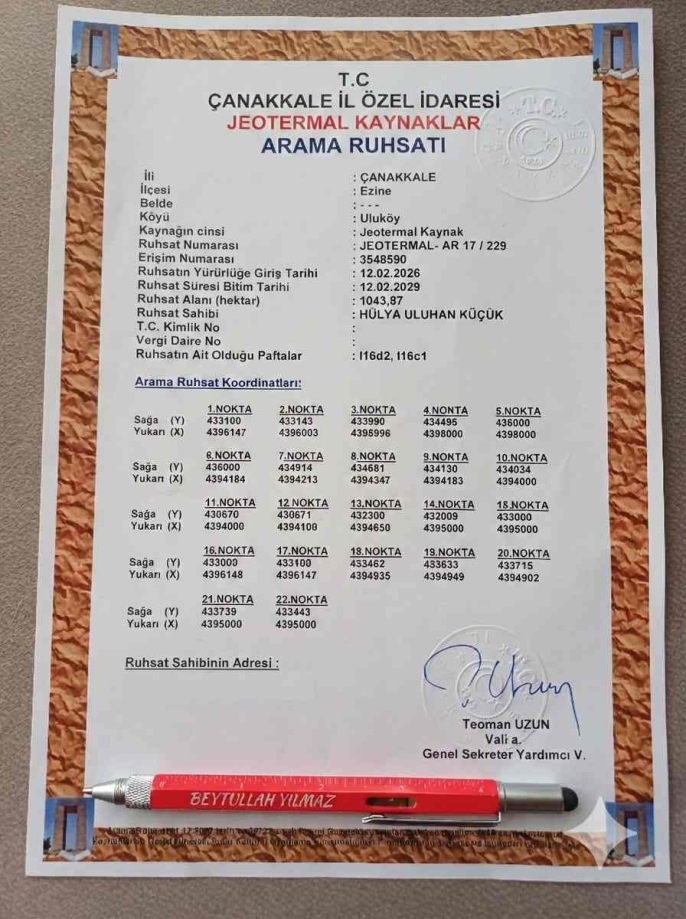 T.C
ÇANAKKALE İL ÖZEL İDARESİ
JEOTERMAL KAYNAKLAR
ARAMA RUHSATI
İli : ÇANAKKALE
İlçesi : Ezine
Belde : - - -
Köyü : Uluköy
Kaynağın cinsi : Jeotermal Kaynak
Ruhsat Numarası : JEOTERMAL- AR 17 / 229
Erişim Numarası : 3548590
Ruhsatın Yürürlüğe Giriş Tarihi : 12.02.2026
Ruhsat Süresi Bitim Tarihi : 12.02.2029
Ruhsat Alanı (hektar) : 1043,87
Ruhsat Sahibi : HÜLYA ULUHAN KÜÇÜK
T.C. Kimlik No :
Vergi Daire No :
Ruhsatın Ait Olduğu Paftalar : I16d2, I16c1
Arama Ruhsat Koordinatları:
1.NOKTA 2.NOKTA 3.NOKTA 4.NONTA 5.NOKTA
Sağa (Y) 433100 433143 433990 434495 436000
Yukarı (X) 4396147 4396003 4395996 4398000 4398000
6.NOKTA 7.NOKTA 8.NOKTA 9.NOKTA 10.NOKTA
Sağa (Y) 436000 434914 434681 434130 434034
Yukarı (X) 4394184 4394213 4394347 4394183 4394000
11.NOKTA 12 NOKTA 13.NOKTA 14.NOKTA 15.NOKTA
Sağa (Y) 430670 430671 432300 432009 433000
Yukarı (X) 4394000 4394100 4394650 4395000 4395000
16.NOKTA 17.NOKTA 18.NOKTA 19.NOKTA 20.NOKTA
Sağa (Y) 433000 433100 433462 433633 433715
Yukarı (X) 4396148 4396147 4394935 4394949 4394902
21.NOKTA 22.NOKTA
Sağa (Y) 433739 433443
Yukarı (X) 4395000 4395000
Ruhsat Sahibinin Adresi :
Teoman UZUN
Vali a.
Genel Sekreter Yardımcı V.
BEYTULLAH YILMAZ